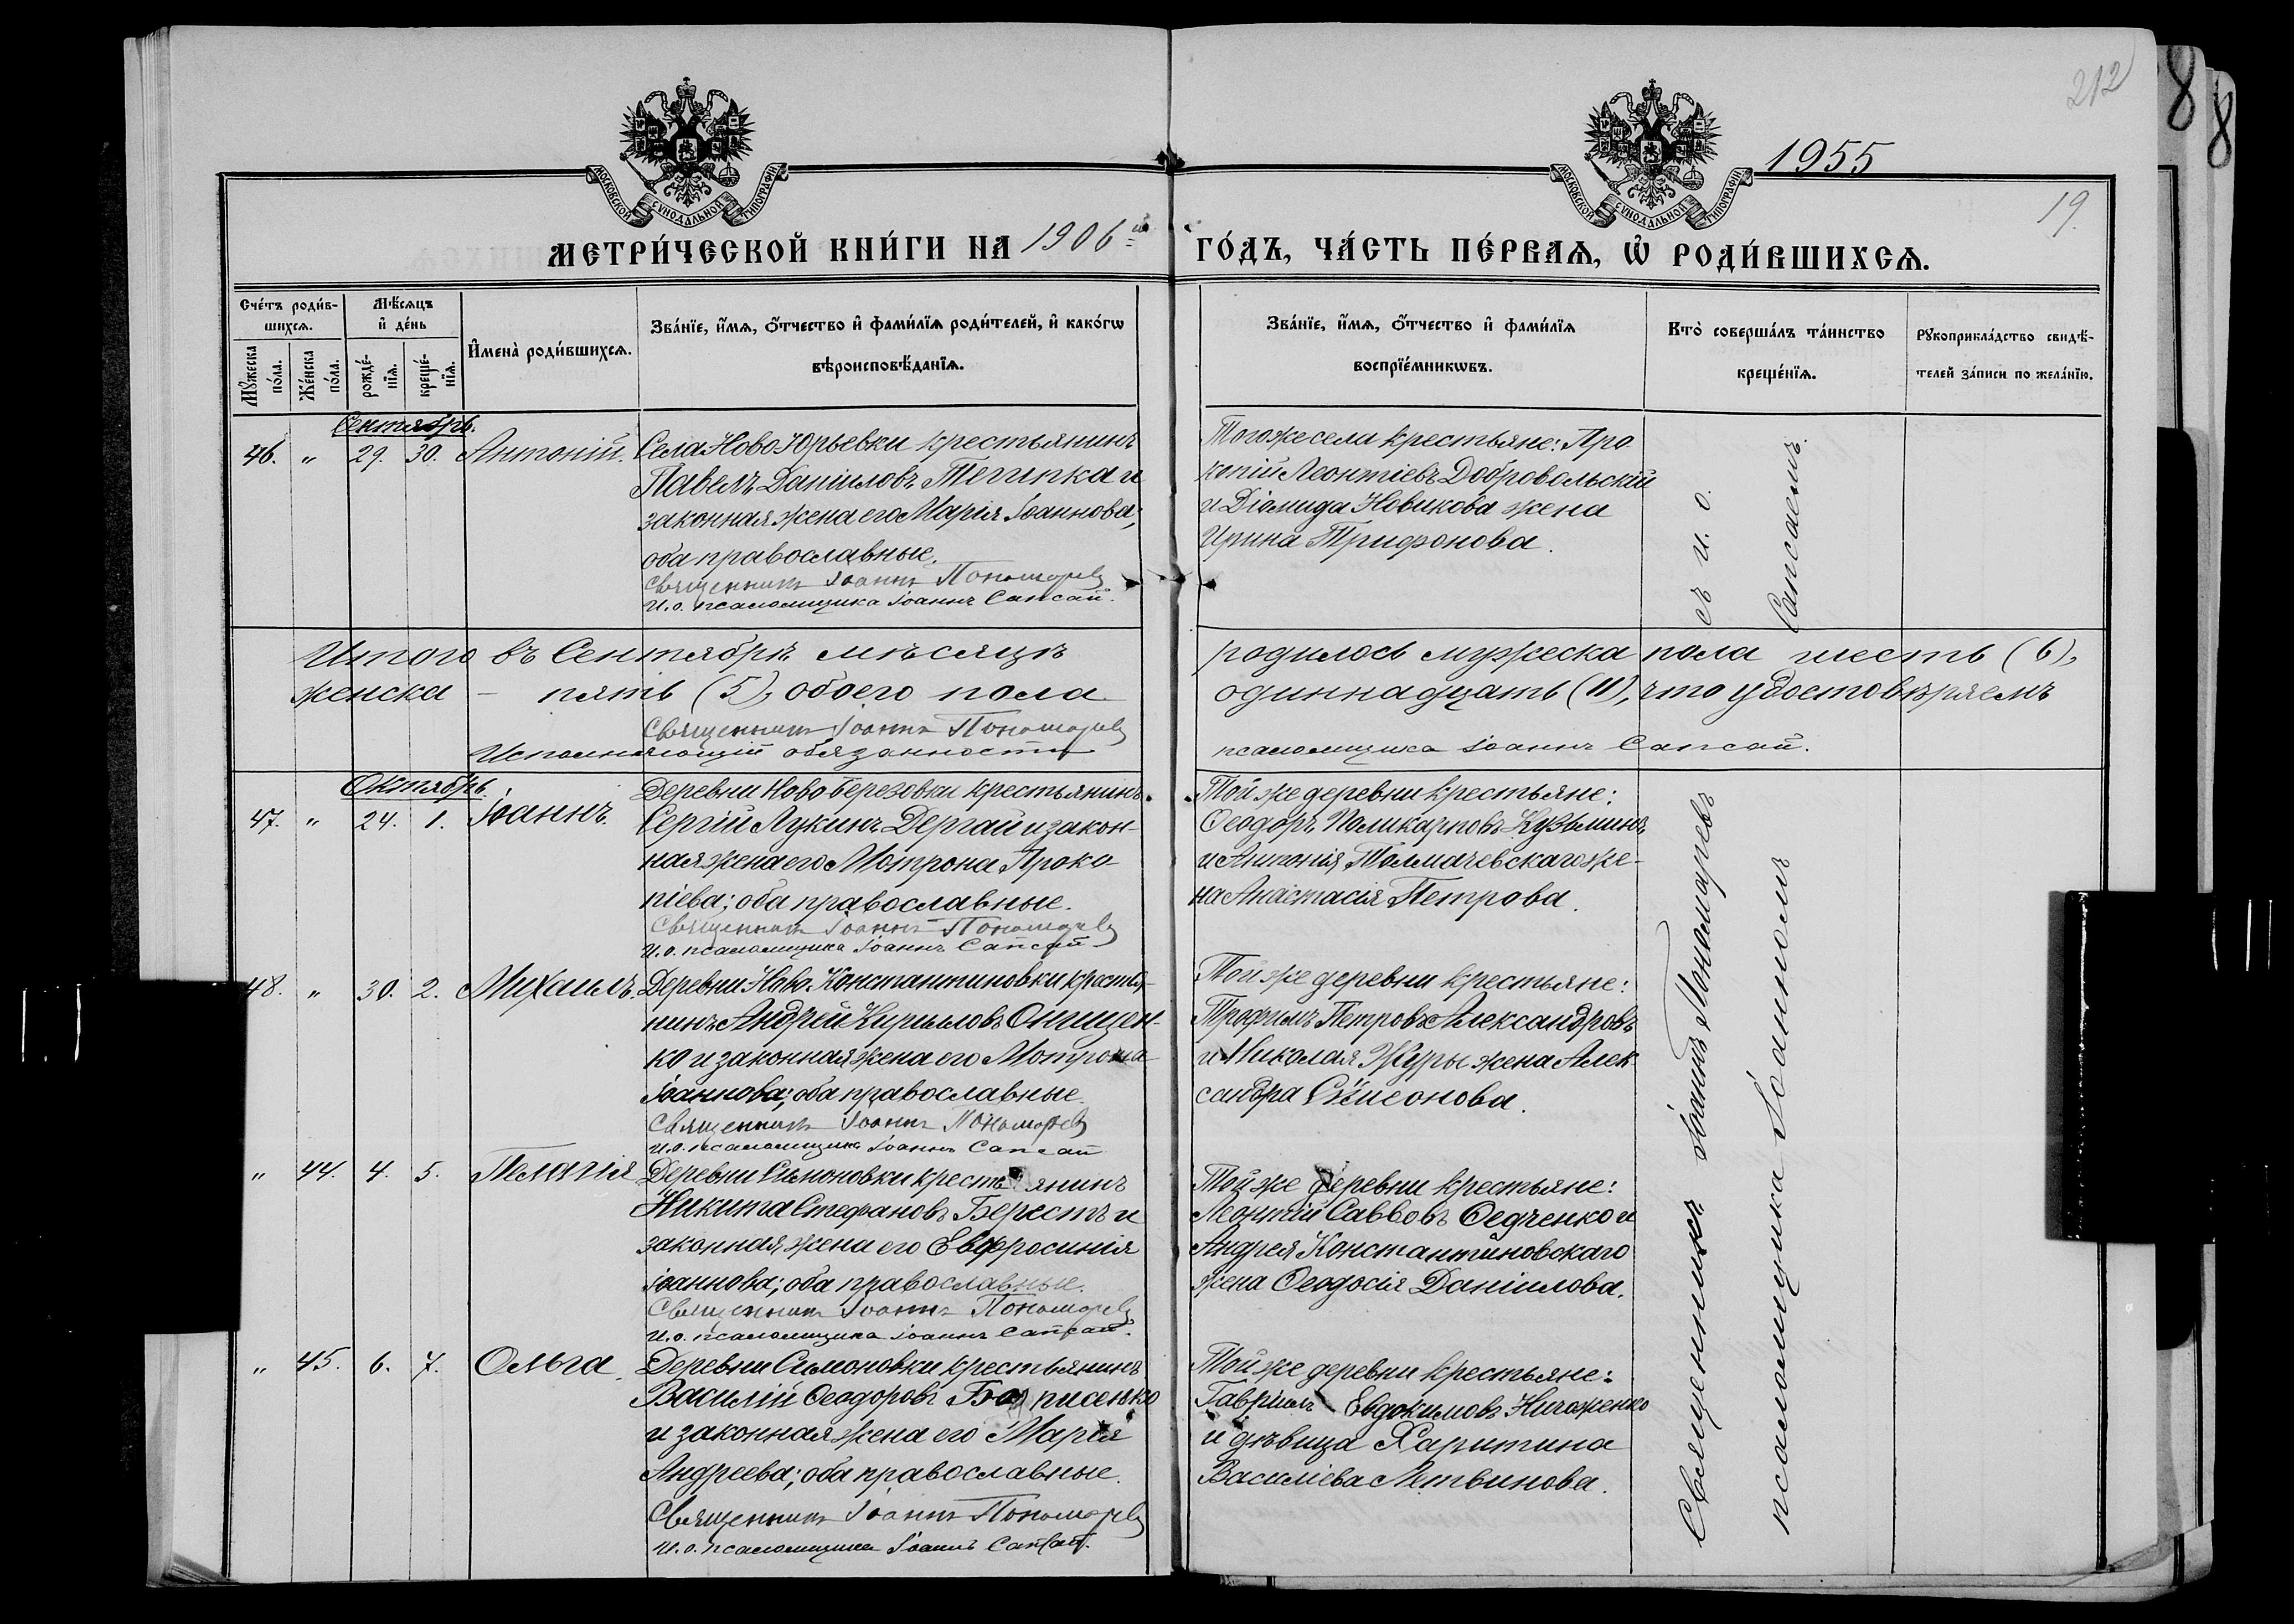 212
8
8
1955
19.
МОСКОВСКОЙ СУНОДАЛЬНОЙ ТИПОГРАФІИ
МОСКОВСКОЙ СУНОДАЛЬНОЙ ТИПОГРАФІИ
МЕТРИ́ЧЕСКОЙ КНИ́ГИ НА 1906й ГО́ДЪ, ЧА́СТЬ ПЕ́РВАѦ, Ѡ҆ РОДИ́ВШИХСѦ.
Сче́тъ роди́в-
шихсѧ.
Мꙋ́жеска по́ла.
Же́нска по́ла.
Мѣ́сѧцъ
и҆ де́нь
рожде́-
нїѧ.
креще́-
нїѧ.
И҆мена̀ роди́вшихсѧ.
Зва́нїе, и҆́мѧ, ѻ҆́тчество и҆ фами́лїѧ роди́телей, и҆ како́гѡ
вѣроисповѣ́данїѧ.
Зва́нїе, и҆́мѧ, ѻ҆́тчество и҆ фами́лїѧ
воспрїе́мникѡвъ.
Кто̀ соверша́лъ та́инство
креще́нїѧ.
Рꙋкоприкла́дство свидѣ́-
телей за́писи по жела́нїю.
Сентябрь.
46. " 29. 30. Антоній.
Села Ново Юрьевки крестьянинъ
Павелъ Даніиловъ Тегипка и
законная жена его Марія Іоаннова;
оба православные.
Священникъ Іоаннъ Пономарев
И.о. псаломщика Іоаннъ Сапсай.
Того же села крестьяне: Про
копій Леонтіевъ Добровольскій
и Діомида Новикова жена
Ирина Трифонова.
съ и. о.
Сапсаемъ.
Итого въ Сентябрѣ мѣсяцѣ родилось мужеска пола шесть (6),
женска – пять (5), обоего пола одиннадцать (11), что удостовѣряемъ
Священникъ Іоаннъ Пономарев
Исполняющій обязанности псаломщика Іоаннъ Сапсай.
Октябрь
47. " 24. 1. Іоаннъ.
Деревни Ново Березовки крестьянинъ
Сергій Лукинъ Дергай и закон-
ная жена его Мотрона Проко
піева; оба православные.
Священникъ Іоаннъ Пономарев
И.о. псаломщика Іоаннъ Сапсай
Той же деревни крестьяне:
Ѳеодоръ Поликарповъ Кузьминъ
и Антонія Толмачевскаго же-
на Анастасія Петрова.
48. " 30. 2. Михаилъ.
Деревни Ново Константиновки крестья-
нинъ Андрей Кирилловъ Онищен-
ко и законная жена его Мотрона
Іоаннова; оба православные.
Священникъ Іоаннъ Пономарев
И.о. псаломщика Іоаннъ Сапсай
Той же деревни крестьяне:
Трофимъ Петровъ Александровъ
и Николая Журы жена Алек
сандра Сѵмеонова.
" 44. 4. 5. Пелагія
Деревни Симоновки крестьянинъ
Никита Стефановъ Берестъ и
законная жена его Евфросинія
Іоаннова; оба православные.
Священникъ Іоаннъ Пономарев
И.о. псаломщика Іоаннъ Сапсай.
Той же деревни крестьяне:
Леонтій Саввовъ Ѳедченко и
Андрея Константиновскаго
жена Ѳеодосія Даніилова.
" 45. 6. 7. Ольга.
Деревни Симоновки крестьянинъ
Василій Ѳеодоровъ
и законная жена его Марія
Андреева; оба православные.
Священникъ Іоаннъ Пономарев
И.о. псаломщика Іоаннъ Сапсай.
Той же деревни крестьяне:
Гавріилъ Евдокимовъ
и дѣвица Харитина
Василіева Летвинова.
Священникъ Іоаннъ Пономаревъ
псаломщика Іоанномъ